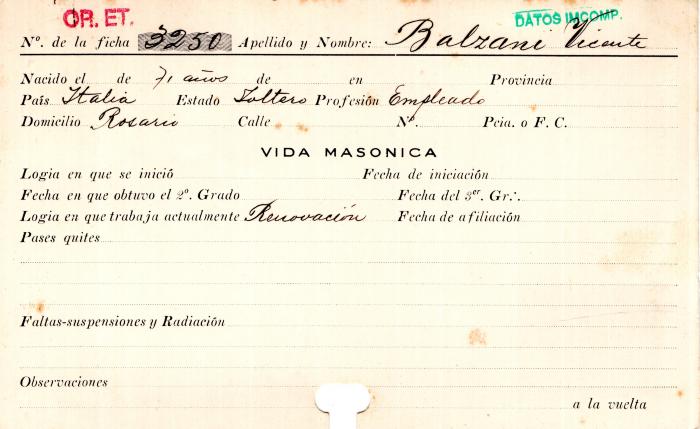 OR. ET.
DATOS IMCOMP.
Nº. de la ficha 3250 Apellido y Nombre: Balzani Vicente
Nacido el de 71 años de en Provincia
País Italia Estado Soltero Profesión Empleado
Domicilio Rosario Calle Nº. Pcia. o F. C.
VIDA MASONICA
Logia en que se inició Fecha de iniciación
Fecha en que obtuvo el 2º. Grado Fecha del 3er. Gr∴
Logia en que trabaja actualmente Renovación Fecha de afiliación
Pases quites
Faltas-suspensiones y Radiación
Observaciones
a la vuelta